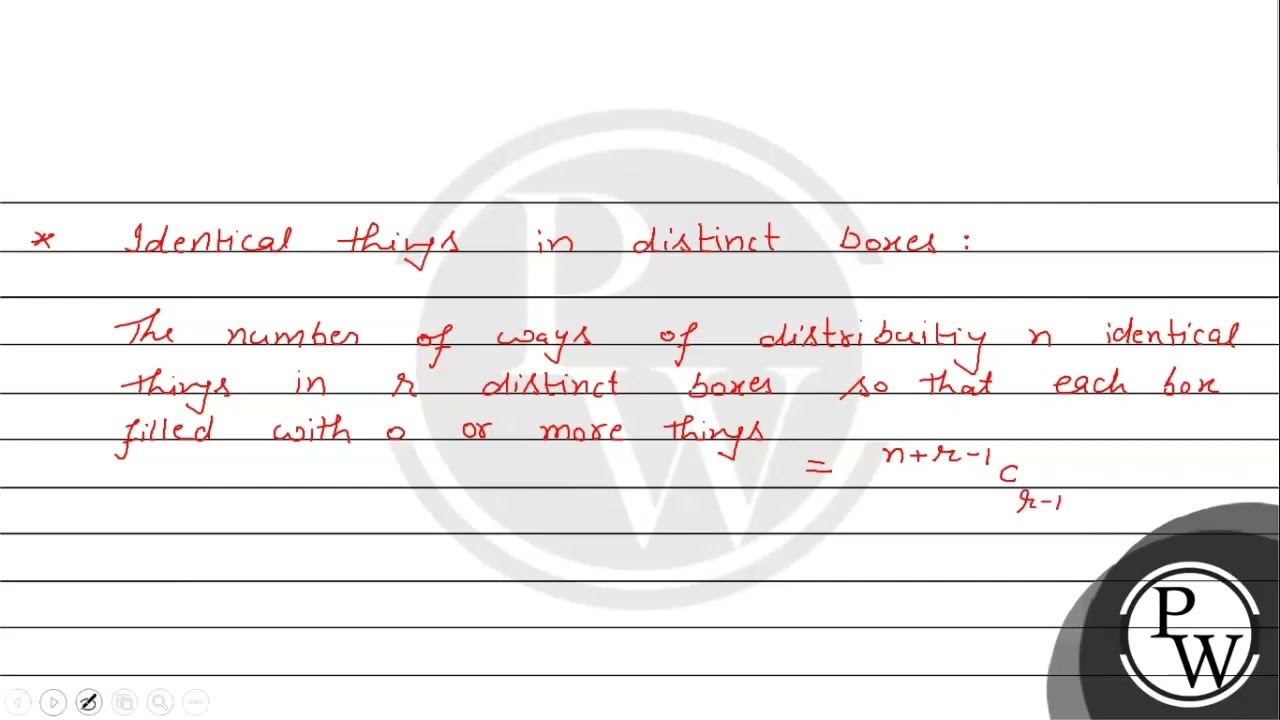 * Identical things in distinct boxes :
The number of ways of distribuitiy n identical
things in r distinct boxes so that each box
filled with 0 or more things
= n+r-1 C r-1
PW
PW